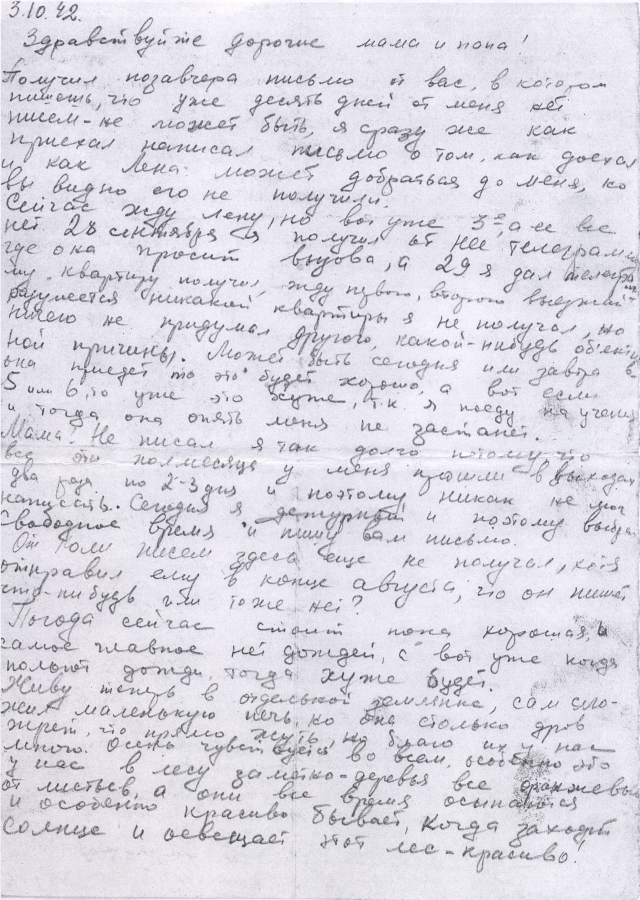 3.10.42.
Здравствуйте дорогие мама и папа!
Получил позавчера письмо от вас, в котором
пишешь, что уже десять дней от меня нет
писем - не может быть, я сразу же как
приехал написал письмо о том, как доехал
и как Лена может добраться до меня, но
вы видно его не получили.
Сейчас жду Лену, но вот уже 3е, а ее все
нет. 28 сентября я получил от нее телеграмму
где она просит вызова, а 29 я дал
квартиру получил, жду первого, второго выезжай
разумеется никакой квартиры я не получал, но
ничего не придумал другого, какой-нибудь
ной причины. Может быть сегодня или завтра
она приедет то это будет хорошо, а вот если
5 или 6, то уже это хуже, т.к. я поеду на учения
и тогда она опять меня не застанет.
Мама! Не писал я так долго потому что
все эти полмесяца у меня прошли в выходах
два раза по 2-3 дня и поэтому никак не мог
написать. Сегодня я дежурный и поэтому выбрал
свободное время и пишу вам письмо.
От Толи писем здесь еще не получал, хотя
отправил ему в конце августа, что он пишет
что-нибудь или тоже нет?
Погода сейчас стоит пока хорошая, и
самое главное нет дождей, а вот уже когда
польют дожди, тогда хуже будет.
Живу теперь в отдельной землянке, сам сло-
жил маленькую печь, но она столько дров
жрет, что прямо жуть, но благо их у нас
много. Осень чувствуется во всем, особенно это
у нас в лесу заметно - деревья все оранжевые
от листьев, а они все время осыпаются
и особенно красиво бывает, когда заходит
солнце и освещает этот лес - красиво!